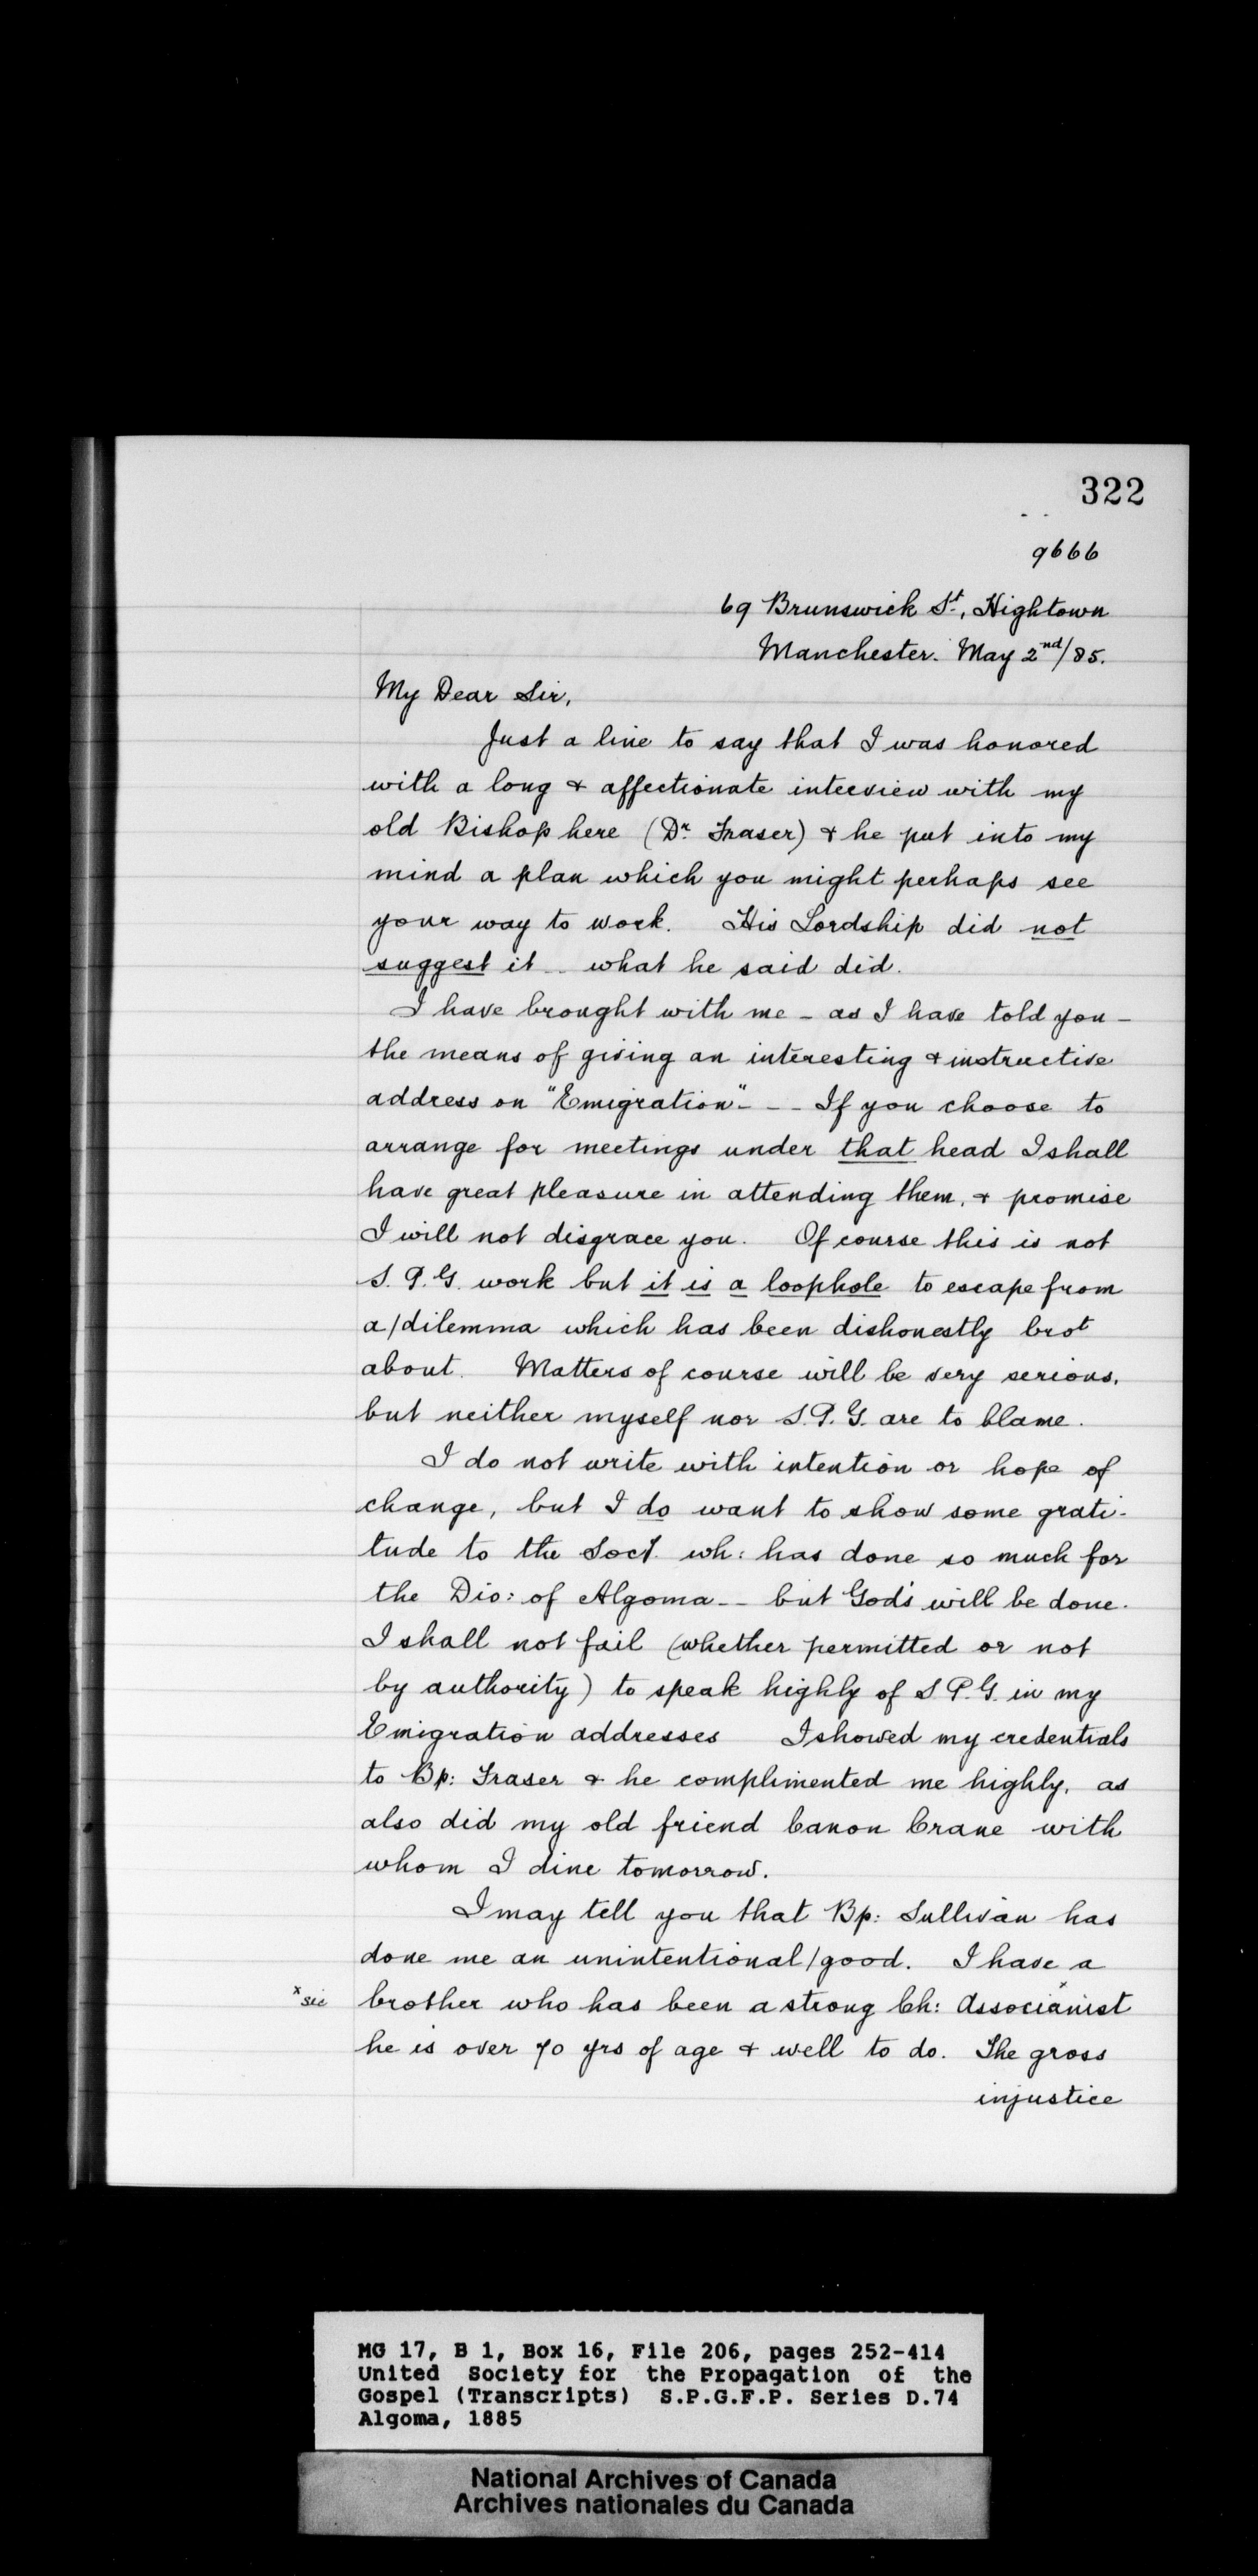 322
9666
69 Brunswick St., Hightown
Manchester. May 2nd/85.
My Dear Sir,
Just a line to say that I was honored
with a long & affectionate interview with my
old Bishop here (Dr. Fraser) & he put into my
mind a plan which you might perhaps see
your way to work. His Lordship did not
suggest it -- what he said did.
I have brought with me - as I have told you -
the means of giving an interesting & instructive
address on "Emigration" - - - If you choose to
arrange for meetings under that head I shall
have great pleasure in attending them, & promise
I will not disgrace you. Of course this is not
S. P. G. work but it is a loophole to escape from
a/dilemma which has been dishonestly brot
about. Matters of course will be very serious,
but neither myself nor S. P. G. are to blame.
I do not write with intention or hope of
change, but I do want to show some grati-
tude to the Socy. wh: has done so much for
the Dio: of Algoma -- but God's will be done.
I shall not fail (whether permitted or not
by authority) to speak highly of S P. G. in my
Emigration addresses I showed my credentials
to Bp: Fraser & he complimented me highly, as
also did my old friend Canon Crane with
whom I dine tomorrow.
I may tell you that Bp: Sullivan has
done me an unintentional/good. I have a
x sic brother who has been a strong Ch: Associanist x
he is over 70 yrs of age & well to do. The gross
injustice
MG 17, B 1, Box 16, File 206, pages 252-414
United Society for the Propagation of the
Gospel (Transcripts) S.P.G.F.P. Series D.74
Algoma, 1885
National Archives of Canada
Archives nationales du Canada